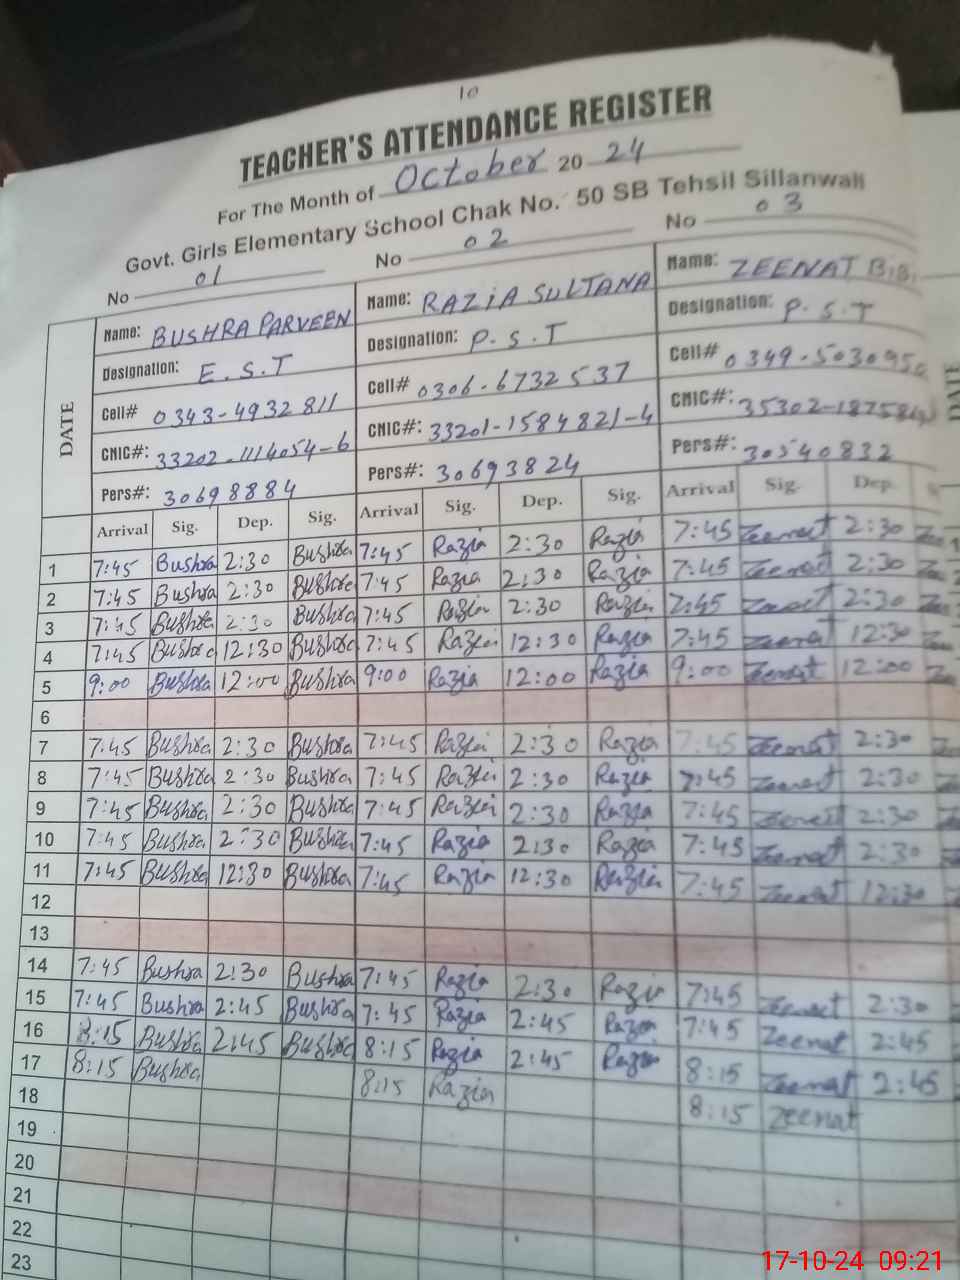 10
TEACHER'S ATTENDANCE REGISTER
For The Month of October 20 24
Govt. Girls Elementary School Chak No. 50 SB Tehsil Sillanwali
No 01 No 02 No 03
DATE
Name: BUSHRA PARVEEN Name: RAZIA SULTANA Name: ZEENAT BIBI
Designation: E.S.T Designation: P.S.T Designation: P.S.T
Cell# 0343-4932811 Cell# 0306-6732537 Cell# 0349-5030950
CNIC#: 33202-1114054-6 CNIC#: 33201-1584821-4 CNIC#:
Pers#: 30698884 Pers#: 30693824 Pers#: 30540832
Arrival Sig. Dep. Sig. Arrival Sig. Dep. Sig. Arrival Sig. Dep.
1 7:45 Bushra 2:30 Bushra 7:45 Razia 2:30 Razia 7:45 Zeenat 2:30
2 7:45 Bushra 2:30 Bushra 7:45 Razia 2:30 Razia 7:45 Zeenat 2:30
3 7:45 Bushra 2:30 Bushra 7:45 Razia 2:30 Razia 7:45 Zeenat 2:30
4 7:45 Bushra 12:30 Bushra 7:45 Razia 12:30 Razia 7:45 Zeenat 12:30
5 9:00 Bushra 12:00 Bushra 9:00 Razia 12:00 Razia 9:00 Zeenat 12:00
6
7 7:45 Bushra 2:30 Bushra 7:45 Razia 2:30 Razia 7:45 Zeenat 2:30
8 7:45 Bushra 2:30 Bushra 7:45 Razia 2:30 Razia 7:45 Zeenat 2:30
9 7:45 Bushra 2:30 Bushra 7:45 Razia 2:30 Razia 7:45 Zeenat 2:30
10 7:45 Bushra 2:30 Bushra 7:45 Razia 2:30 Razia 7:45 Zeenat 2:30
11 7:45 Bushra 12:30 Bushra 7:45 Razia 12:30 Razia 7:45 Zeenat 12:30
12
13
14 7:45 Bushra 2:30 Bushra 7:45 Razia 2:30 Razia 7:45 Zeenat 2:30
15 7:45 Bushra 2:45 Bushra 7:45 Razia 2:45 Razia 7:45 Zeenat 2:45
16 8:15 Bushra 2:45 Bushra 8:15 Razia 2:45 Razia 8:15 Zeenat 2:45
17 8:15 Bushra 8:15 Razia 8:15 Zeenat
18
19
20
21
22
23
17-10-24 09:21